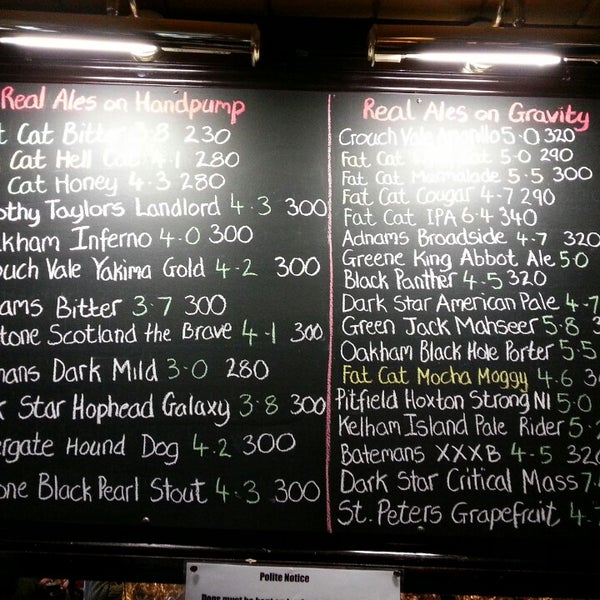 Real Ales on Handpump
t Cat Bitter 3.8 230
Cat Hell Cat 4.1 280
Cat Honey 4.3 280
othy Taylors Landlord 4.3 300
kham Inferno 4.0 300
ouch Vale Yakima Gold 4.2 300
ams Bitter 3.7 300
tone Scotland the Brave 4.1 300
mans Dark Mild 3.0 280
k Star Hophead Galaxy 3.8 300
ergate Hound Dog 4.2 300
one Black Pearl Stout 4.3 300
Real Ales on Gravity
Crouch Vale Amarillo 5.0 320
Fat Cat Cat 5.0 290
Fat Cat Marmalade 5.5 300
Fat Cat Cougar 4.7 290
Fat Cat IPA 6.4 340
Adnams Broadside 4.7 320
Greene King Abbot Ale 5.0
Black Panther 4.5 320
Dark Star American Pale 4.7
Green Jack Mahseer 5.8 3
Oakham Black Hole Porter 5.5
Fat Cat Mocha Moggy 4.6 3
Pitfield Hoxton Strong NI 5.0
Kelham Island Pale Rider 5.2
Batemans XXXB 4.5 320
Dark Star Critical Mass 7.
St. Peters Grapefruit 4.7
Polite Notice
Dogs must be kept on